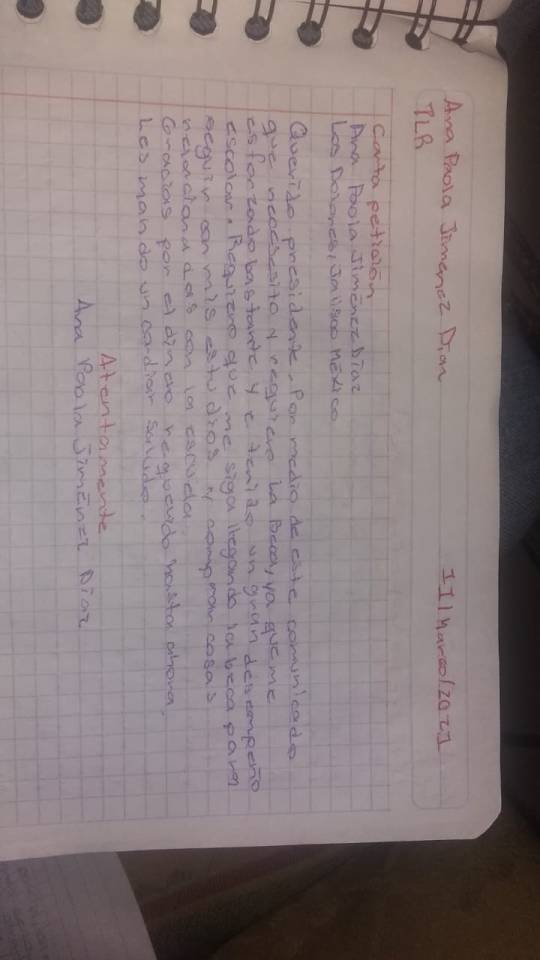 Ana Paola Jimenez Diaz 11/Marzo/2021
TLR
Carta petición
Ana Paola Jiménez Díaz
Los Dolores, Jalisco México
Querido presidente, Por medio de este comunicado
que necesito y requiero la Beca, ya que me
esforzado bastante y e tenido un gran desempeño
escolar. Requiero que me siga llegando la beca para
seguir con mis estudios y comprar cosas
relacionadas con la escuela.
Gracias por el dinero requerido hasta ahora,
Les mando un cordial saludo.
Atentamente
Ana Paola Jiménez Díaz